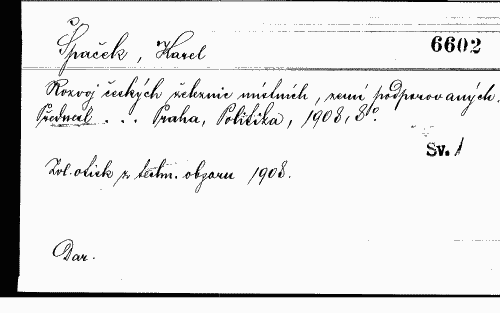 Špaček, Karel
6602
Rozvoj českých železnic místních, zemí podporovaných.
Přednesl . . . Praha, Politika, 1908, 8°.
Sv. 1
Zvl. otisk z techn. obzoru 1908.
Dar.